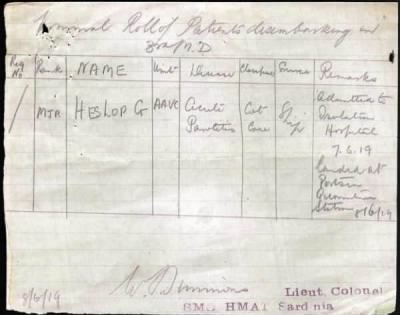 Nominal Roll of Patients disembarking in
3rd M.D
Reg No Rank NAME Unit Disease Classfn Service Remarks
MJR HESLOP G AAVC Acute Parotitis Cot Case
Admitted to
Isolation
Hospital
7.6.19
Landed at
Portsea
Quarantine
Station 8/6/19
8/6/19
Lieut Colonel
SMO HMAT Sardinia